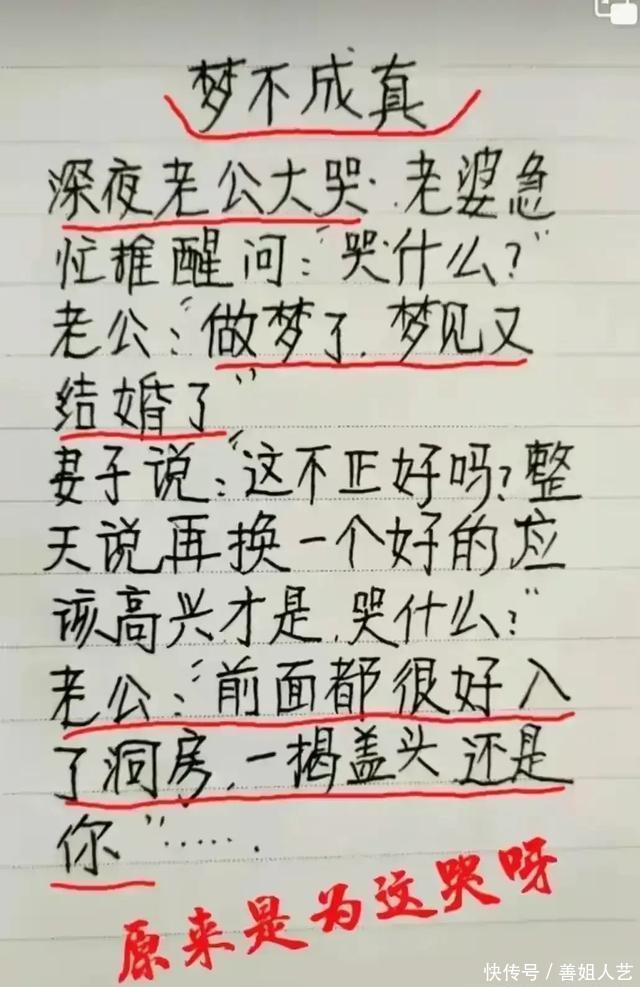 梦不成真
深夜老公大哭.老婆急
忙推醒问:“哭什么?”
老公:“做梦了.梦见又
结婚了”
妻子说:“这不正好吗?整
天说再换一个好的应
该高兴才是.哭什么?”
老公:“前面都很好入
了洞房,一揭盖头还是
你”......
原来是为这哭呀
快传号/善姐人艺